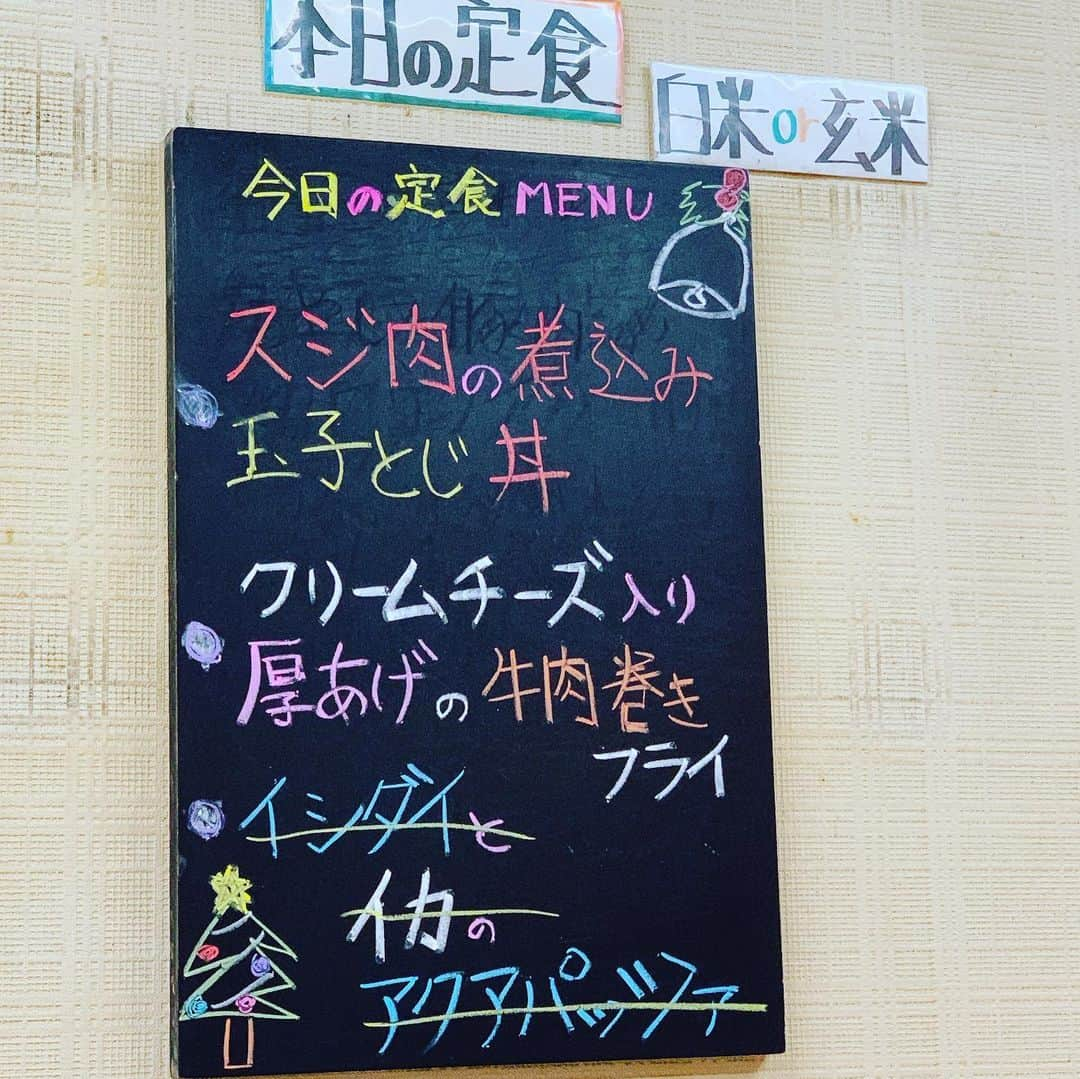 本日の定食
白米or玄米
今日の定食 MENU
スジ肉の煮込み
玉子とじ丼
クリームチーズ入り
厚あげの牛肉巻き
フライ
イシダイと
イカの
アクアパッツァ